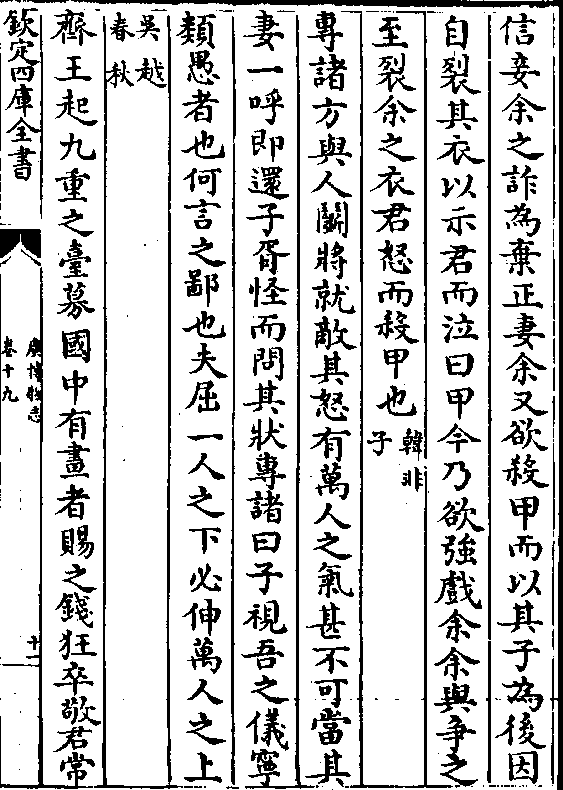 信妾余之詐為棄正妻余又欲殺甲而以其子為後因
自裂其衣以示君而泣曰甲今乃欲強戲余余與爭之
至裂余之衣君怒而殺甲也韓非子
專諸方與人鬭將就敵其怒有萬人之氣甚不可當其
妻一呼即還子胥怪而問其狀專諸曰子視吾之儀寧
類愚者也何言之鄙也夫屈一人之下必伸萬人之上
吳越春秋
齊王起九重之臺募國中有畫者賜之錢狂卒敬君常
欽定四庫全書
廣博物志
卷十九
十一